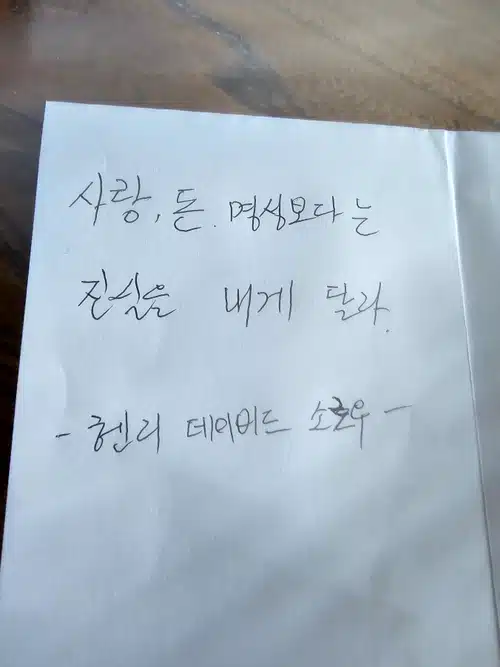 사랑, 돈. 명성보다는
진실을 내게 달라.
- 헨리 데이비드 소로우 -